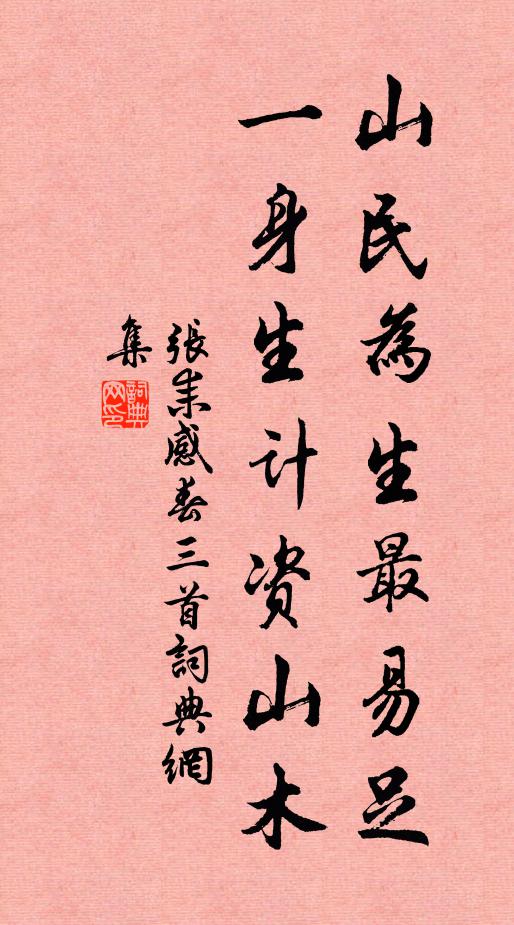 山民為生最易足
一身生计資山木
張耒感春三首詞典網
集
詞典
网印